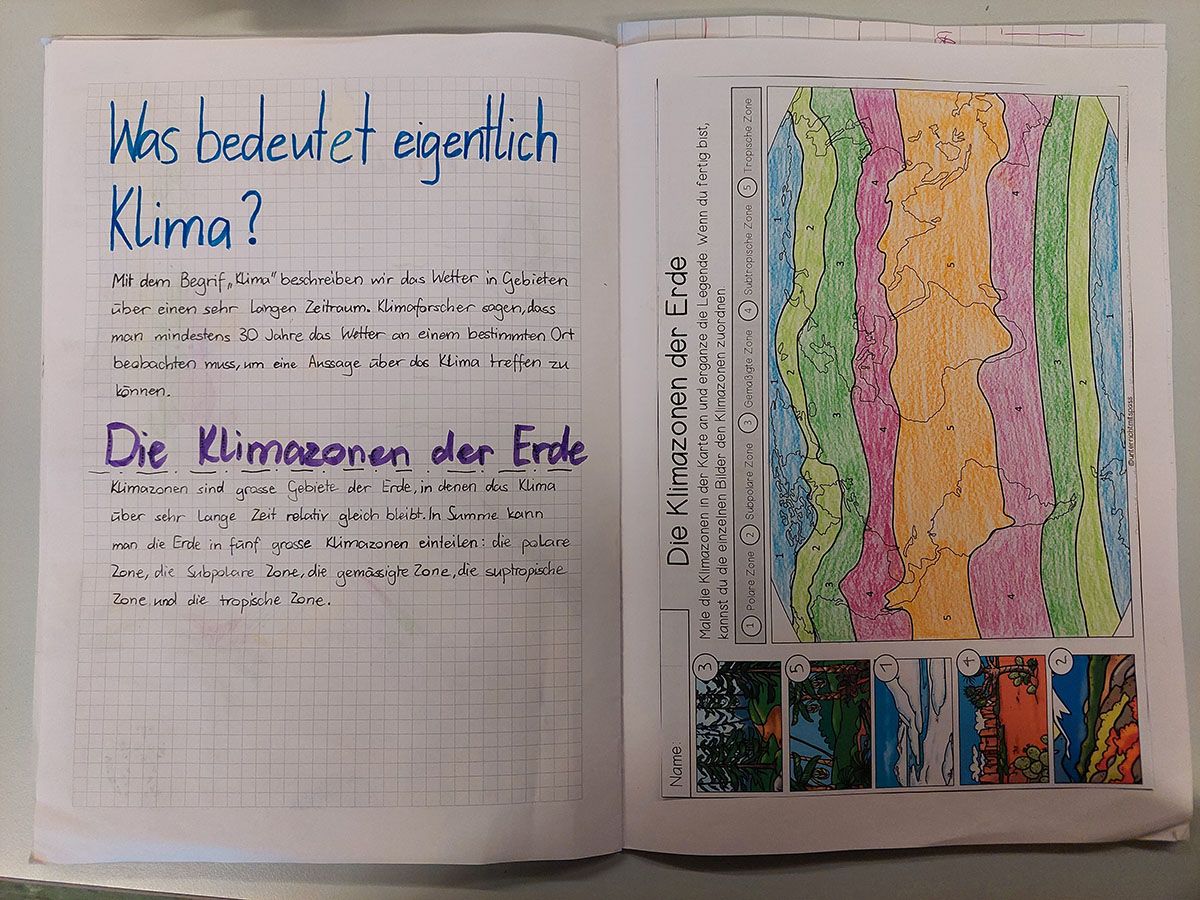 Was bedeutet eigentlich
Klima?
Mit dem Begrif „Klima" beschreiben wir das Wetter in Gebieten
über einen sehr Langen Zeitraum. Klimaforscher sagen, dass
man mindestens 30 Jahre das Wetter an einem bestimmten Ort
beobachten muss, um eine Aussage über das Klima treffen zu
können.
Die Klimazonen der Erde
Klimazonen sind grosse Gebiete der Erde, in denen das Klima
über sehr Lange Zeit relativ gleich bleibt. In Summe kann
man die Erde in fünf grosse Klimazonen einteilen: die polare
Zone, die Subpolare Zone, die gemässigte Zone, die suptropische
Zone und die tropische Zone.
Name:
Die Klimazonen der Erde
Male die Klimazonen in der Karte an und ergänze die Legende. Wenn du fertig bist,
kannst du die einzelnen Bilder den Klimazonen zuordnen
1 Polare Zone 2 Subpolare Zone 3 Gemäßigte Zone 4 Subtropische Zone 5 Tropische Zone
3
5
1
4
2
1 1
2 2 2 2
3 3 3
4 4 4 4
5 5 5
4 4 4
3
2
1
5
©unterrichtmitspass